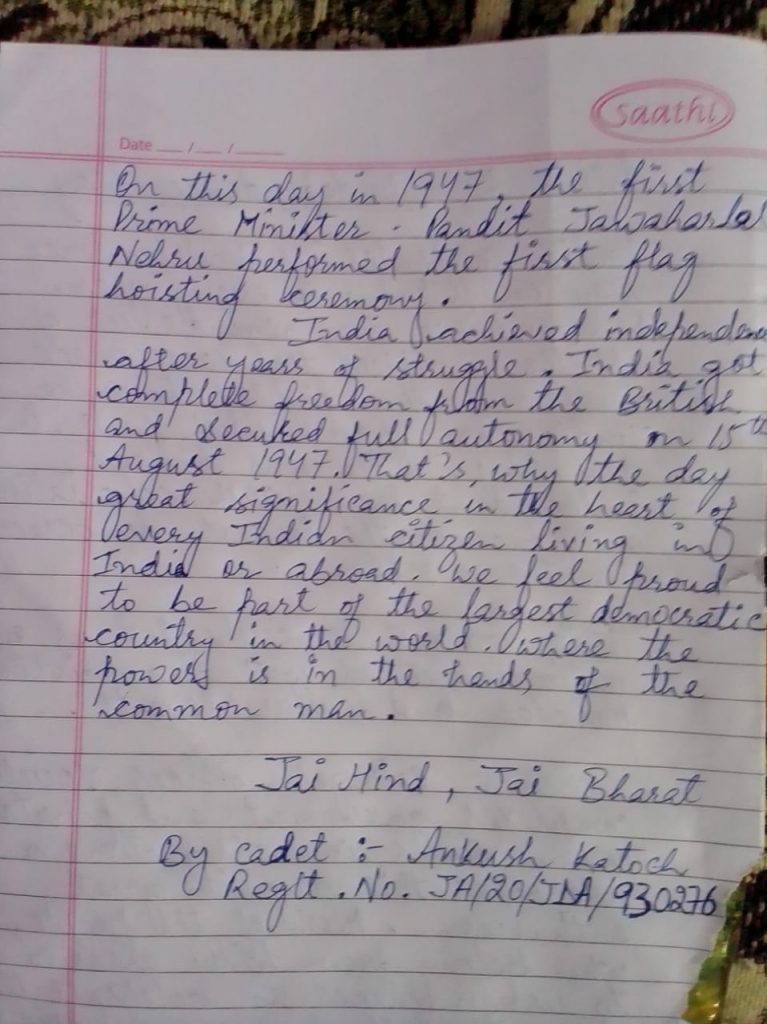 saathi
Date __/__/____
On this day in 1947, the first
Prime Minister . Pandit Jawaharlal
Nehru performed the first flag
hoisting ceremony.
India achieved independenc
after years of struggle. India got
complete freedom from the British
and secured full autonomy on 15th
August 1947. That's, why the day
great significance in the heart of
every Indian citizen living in
India or abroad. We feel proud
to be part of the largest democratic
country in the world. where the
power is in the hands of the
common man.
Jai Hind, Jai Bharat
By cadet :- Ankush Katoch
Regtt. No. JA/20/JDA/930276